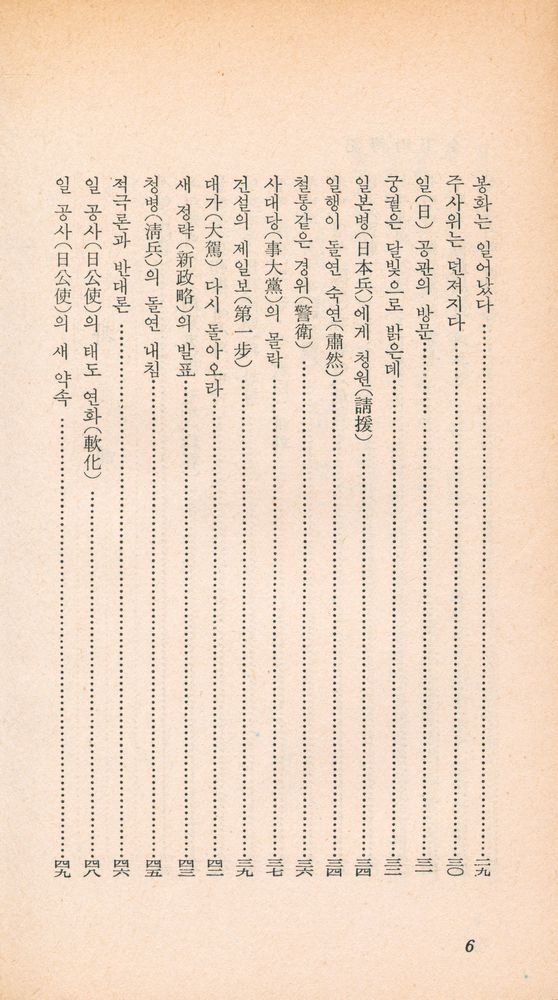 봉화는 일어났다…………二九
주사위는 던져지다…………三〇
일(日) 공관의 방문…………三一
궁궐은 달빛으로 밝은데…………三二
일본병(日本兵)에게 청원(請援)…………三四
일행이 돌연 숙연(肅然)…………三四
철통같은 경위(警衛)…………三六
사대당(事大黨)의 몰락…………三七
건설의 제일보(第一步)…………三九
대가(大駕) 다시 돌아오라…………四二
새 정략(新政略)의 발표…………四三
청병(淸兵)의 돌연 내침…………四五
적극론과 반대론…………四六
일 공사(日公使)의 태도 연화(軟化)…………四八
일 공사(日公使)의 새 약속…………四九
6